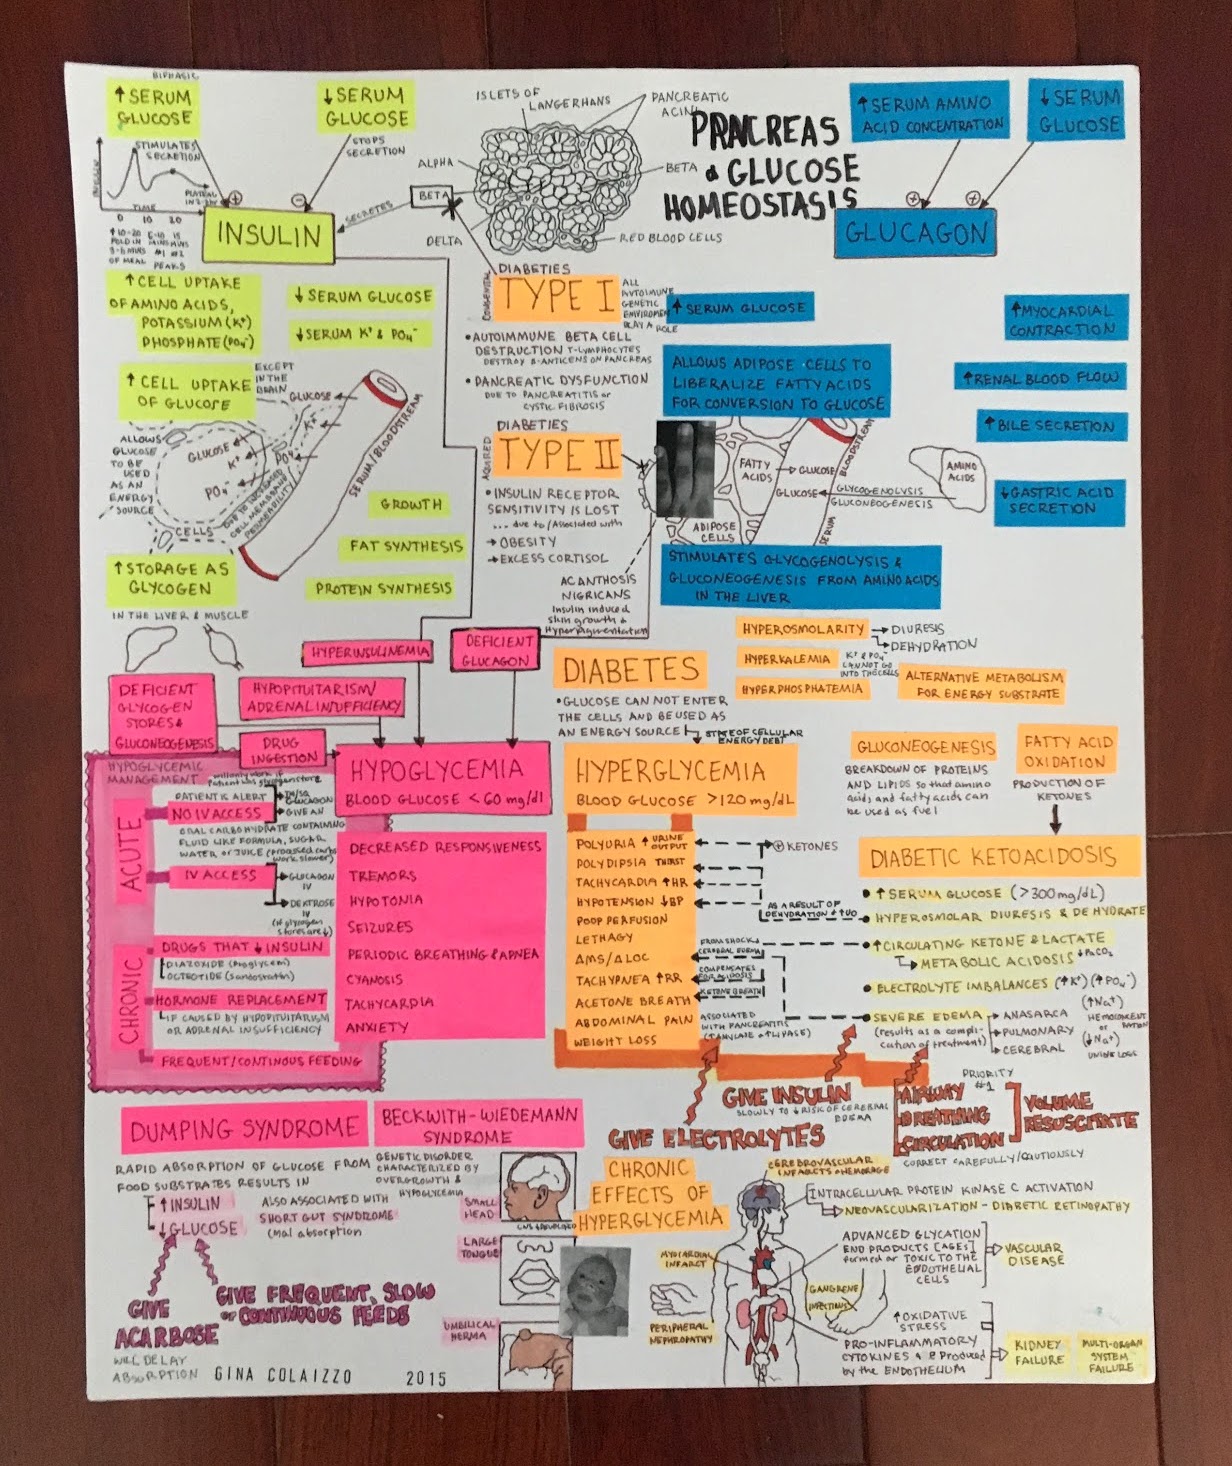 PANCREAS
& GLUCOSE
HOMEOSTASIS
BIPHASIC
↑ SERUM
GLUCOSE
↓ SERUM
GLUCOSE
STIMULATES
SECRETION
STOPS
SECRETION
TIME
0 10 20
INSULIN
SECRETES
ISLETS OF
LANGERHANS
PANCREATIC
ACINI
ALPHA
BETA
BETA
DELTA
RED BLOOD CELLS
↑ SERUM AMINO
ACID CONCENTRATION
↓ SERUM
GLUCOSE
GLUCAGON
↑ CELL UPTAKE
OF AMINO ACIDS,
POTASSIUM (K⁺)
PHOSPHATE (PO₄⁻)
↓ SERUM GLUCOSE
↓ SERUM K⁺ & PO₄⁻
↑ CELL UPTAKE
OF GLUCOSE
EXCEPT
IN THE
BRAIN
GLUCOSE
K⁺
PO₄⁻
GLUCOSE
K⁺
PO₄⁻
SERUM/BLOODSTREAM
DUE TO INCREASED
CELL MEMBRANE
PERMEABILITY
ALLOWS
GLUCOSE
TO BE
USED
AS AN
ENERGY
SOURCE
CELLS
GROWTH
FAT SYNTHESIS
PROTEIN SYNTHESIS
↑ STORAGE AS
GLYCOGEN
IN THE LIVER & MUSCLE
DIABETIES
TYPE I
CONGENITAL
ALL
AUTOIMUNE
GENETIC
ENVIROMENT
PLAY A ROLE
• AUTOIMMUNE BETA CELL
DESTRUCTION T-LYMPHOCYTES
DESTROY B-ANTIGENS ON PANCREAS
• PANCREATIC DYSFUNCTION
DUE TO PANCREATITIS or
CYSTIC FIBROSIS
DIABETIES
TYPE II
AQUIRED
• INSULIN RECEPTOR
SENSITIVITY IS LOST
... due to/Associated with
→ OBESITY
→ EXCESS CORTISOL
ACANTHOSIS
NIGRICANS
Insulin induced
skin growth &
Hyperpigmentation
↑ SERUM GLUCOSE
ALLOWS ADIPOSE CELLS TO
LIBERALIZE FATTY ACIDS
FOR CONVERSION TO GLUCOSE
↑ MYOCARDIAL
CONTRACTION
↑ RENAL BLOOD FLOW
↑ BILE SECRETION
↓ GASTRIC ACID
SECRETION
FATTY
ACIDS
GLUCOSE
GLUCOSE
GLYCOGENOLYSIS
GLUCONEOGENESIS
AMINO
ACIDS
ADIPOSE
CELLS
SERUM
BLOODSTREAM
STIMULATES GLYCOGENOLYSIS &
GLUCONEOGENESIS FROM AMINO ACIDS
IN THE LIVER
HYPERINSULINEMIA
DEFICIENT
GLUCAGON
DEFICIENT
GLYCOGEN
STORES &
GLUCONEOGENESIS
HYPOPITUITARISM/
ADRENAL INSUFFICIENCY
DRUG
INGESTION
HYPOGLYCEMIA
BLOOD GLUCOSE < 60 mg/dl
DECREASED RESPONSIVENESS
TREMORS
HYPOTONIA
SEIZURES
PERIODIC BREATHING & APNEA
CYANOSIS
TACHYCARDIA
ANXIETY
HYPOGLYCEMIC
MANAGEMENT
ACUTE
PATIENT IS ALERT
NO IV ACCESS
GLUCAGON
GIVE AN
ORAL CARBOHYDRATE CONTAINING
FLUID LIKE FORMULA, SUGAR
WATER, or JUICE (processed carbs
work slower)
IV ACCESS
GLUCAGON
IV
DEXTROSE
IV
(if glycogen
stores are ↓)
CHRONIC
DRUGS THAT ↓ INSULIN
DIAZOXIDE (Proglycem)
OCTEOTIDE (Sandostatin)
HORMONE REPLACEMENT
IF CAUSED BY HYPOPITUITARISM
OR ADRENAL INSUFFICIENCY
FREQUENT/CONTINOUS FEEDING
DIABETES
• GLUCOSE CAN NOT ENTER
THE CELLS AND BE USED AS
AN ENERGY SOURCE
STATE OF CELLULAR
ENERGY DEBT
HYPEROSMOLARITY → DIURESIS
→ DEHYDRATION
HYPERKALEMIA
K⁺ & PO₄⁻
CANNOT GO
INTO THE CELLS
HYPERPHOSPHATEMIA
ALTERNATIVE METABOLISM
FOR ENERGY SUBSTRATE
HYPERGLYCEMIA
BLOOD GLUCOSE >120 mg/dL
POLYURIA ↑ URINE
OUTPUT
POLYDIPSIA THIRST
TACHYCARDIA ↑HR
HYPOTENSION ↓BP
POOP PERFUSION
LETHAGY
AMS/ΔLOC
TACHYPNEA ↑RR
ACETONE BREATH
ABDOMINAL PAIN
WEIGHT LOSS
⊕ KETONES
AS A RESULT OF
DEHYDRATION & ↑UO
FROM SHOCK &
CEREBRAL EDEMA
COMPENSATES
FOR ACIDOSIS
KETONE BREATH
ASSOCIATED
WITH PANCREATITIS
(↑AMYLASE & ↑LIPASE)
GLUCONEOGENESIS
BREAKDOWN OF PROTEINS
AND LIPIDS so that amino
acids and fatty acids can
be used as fuel
FATTY ACID
OXIDATION
PRODUCTION OF
KETONES
DIABETIC KETOACIDOSIS
• ↑ SERUM GLUCOSE (>300mg/dL)
• HYPEROSMOLAR DIURESIS & DEHYDRATE
• ↑ CIRCULATING KETONE & LACTATE
METABOLIC ACIDOSIS ↓PaCO₂
• ELECTROLYTE IMBALANCES (↑K⁺) (↑PO₄⁻)
(↑Na⁺)
HEMOCONCENTRATION
or
(↓Na⁺)
URINE LOSS
• SEVERE EDEMA
(results as a compli-
cation of treatment)
→ ANASARCA
→ PULMONARY
→ CEREBRAL
GIVE INSULIN
SLOWLY TO ↓ RISK OF CEREBRAL
EDEMA
GIVE ELECTROLYTES
PRIORITY
#1
AIRWAY
BREATHING
CIRCULATION
VOLUME
RESUSCITATE
CORRECT CAREFULLY/CAUTIONSLY
DUMPING SYNDROME
RAPID ABSORPTION OF GLUCOSE FROM
FOOD SUBSTRATES RESULTS IN
↑ INSULIN
↓ GLUCOSE
ALSO ASSOCIATED WITH
SHORT GUT SYNDROME
(Mal absorption
GIVE
ACARBOSE
WILL DELAY
ABSORPTION
GIVE FREQUENT, SLOW
or CONTINUOUS FEEDS
BECKWITH-WIEDEMANN
SYNDROME
GENETIC DISORDER
CHARACTERIZED BY
OVERGROWTH &
HYPOGLYCEMIA
SMALL
HEAD
LARGE
TONGUE
UMBILICAL
HERNIA
GINA COLAIZZO 2015
CHRONIC
EFFECTS OF
HYPERGLYCEMIA
CEREBROVASCULAR
INFARCTS & HEMORRAGE
MYOCARDIAL
INFARCT
PERIPHERAL
NEPHROPATHY
GANGRENE
INFECTIONS
INTRACELLULAR PROTEIN KINASE C ACTIVATION
→ NEOVASCULARIZATION - DIABETIC RETINOPATHY
ADVANCED GLYCATION
END PRODUCTS [AGES]
formed or TOXIC TO THE
ENDOTHELIAL
CELLS
VASCULAR
DISEASE
↑ OXIDATIVE
STRESS
PRO-INFLAMMATORY
CYTOKINES produced
by the ENDOTHELIUM
KIDNEY
FAILURE
MULTI-ORGAN
SYSTEM
FAILURE